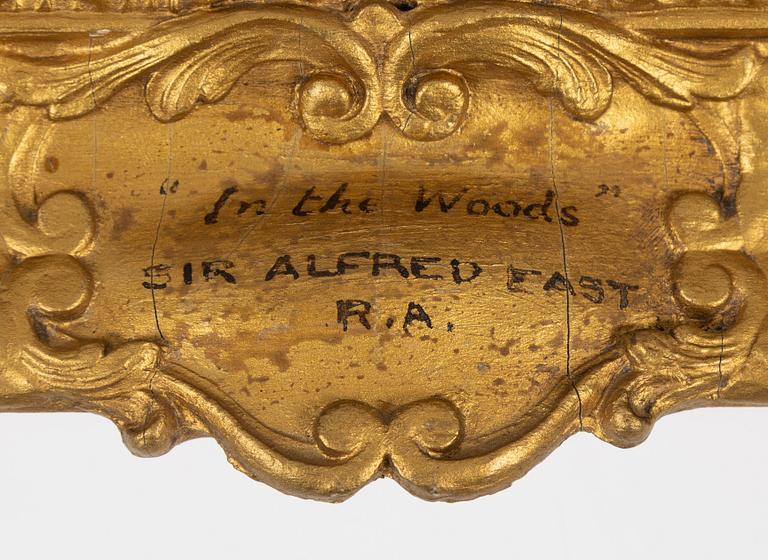 “In the Woods”
SIR ALFRED EAST
R.A.